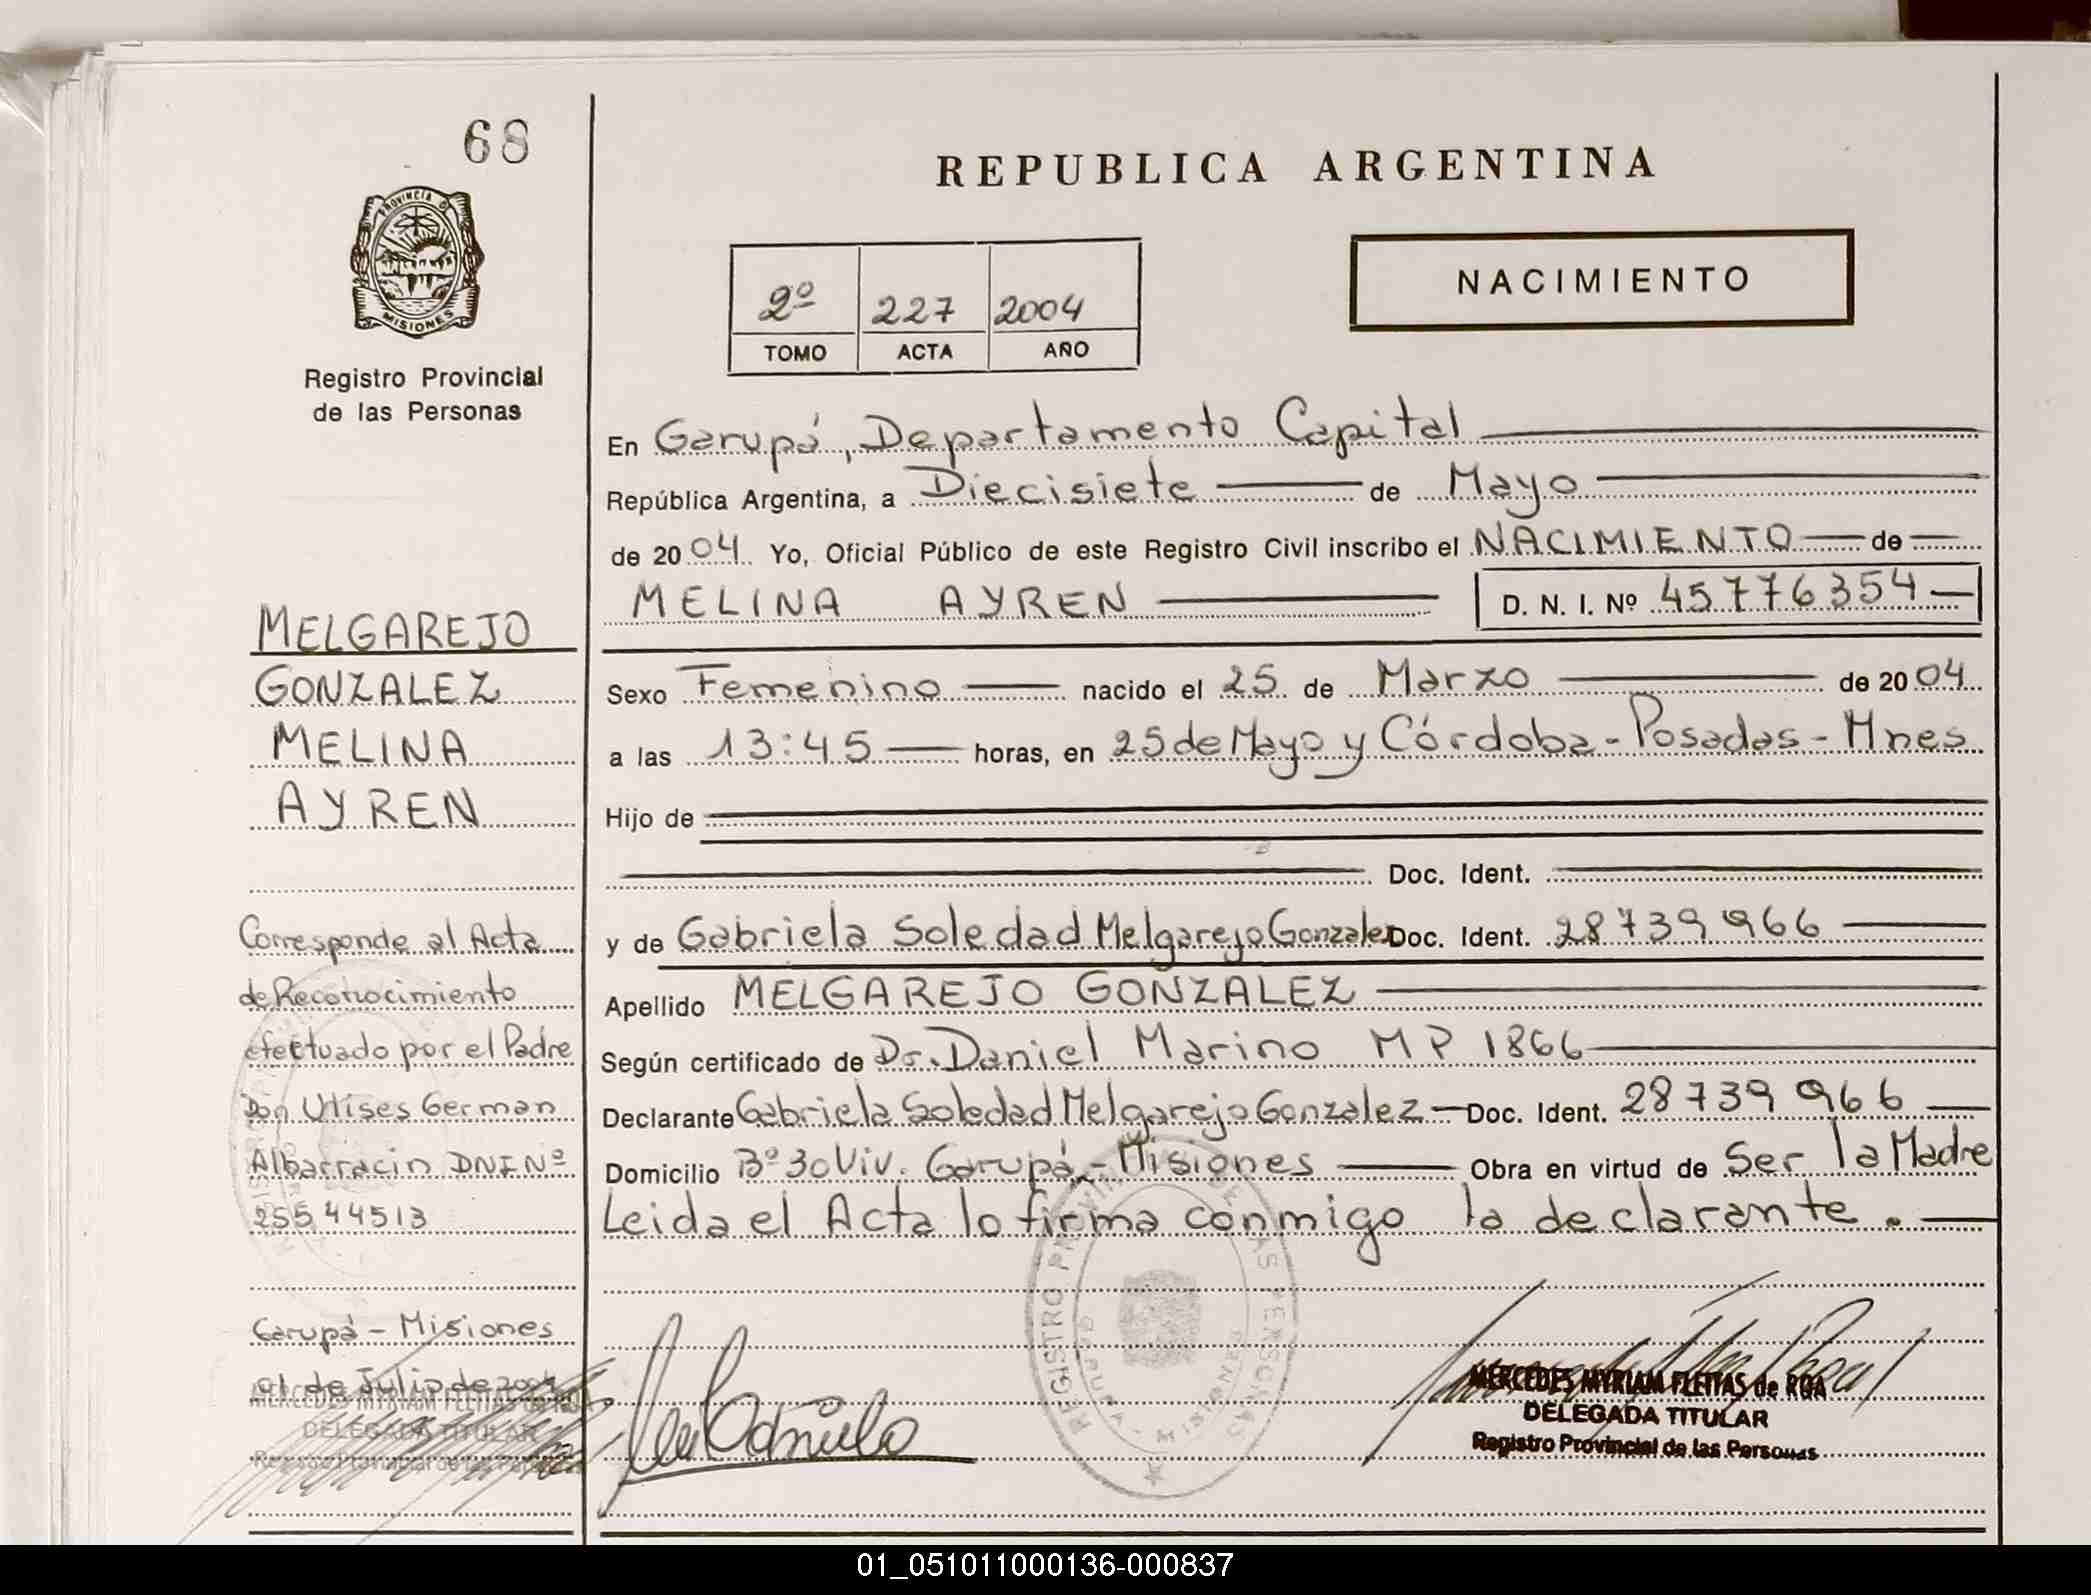 68
PROVINCIA DE
MISIONES
Registro Provincial
de las Personas
REPUBLICA ARGENTINA
NACIMIENTO
2º 227 2004
TOMO ACTA AÑO
En Garupá, Departamento Capital
República Argentina, a Diecisiete de Mayo
de 2004 Yo, Oficial Público de este Registro Civil inscribo el NACIMIENTO de
MELINA AYREN D. N. I. Nº 45776354
Sexo Femenino nacido el 25 de Marzo de 2004
a las 13:45 horas, en 25 de Mayo y Córdoba - Posadas - Mnes
Hijo de
Doc. Ident.
y de Gabriela Soledad Melgarejo Gonzalez Doc. Ident. 28739966
Apellido MELGAREJO GONZALEZ
Según certificado de Dr. Daniel Marino MP 1866
Declarante Gabriela Soledad Melgarejo Gonzalez - Doc. Ident. 28739966
Domicilio Bº 30 Viv. Garupá - Misiones Obra en virtud de Ser la Madre
Leida el Acta lo firma conmigo la declarante.
MELGAREJO
GONZALEZ
MELINA
AYREN
Corresponde al Acta
de Reconocimiento
efectuado por el Padre
Don Ulises German
Albarracin DNI Nº
25544513
Garupá - Misiones
01 de Julio de 2004
MERCEDES MYRIAM FLEITAS de ROA
DELEGADA TITULAR
Registro Provincial de las Personas
REGISTRO PROVINCIAL DE LAS PERSONAS
GARUPA - MISIONES
MERCEDES MYRIAM FLEITAS de ROA
DELEGADA TITULAR
Registro Provincial de las Personas
01_051011000136-000837